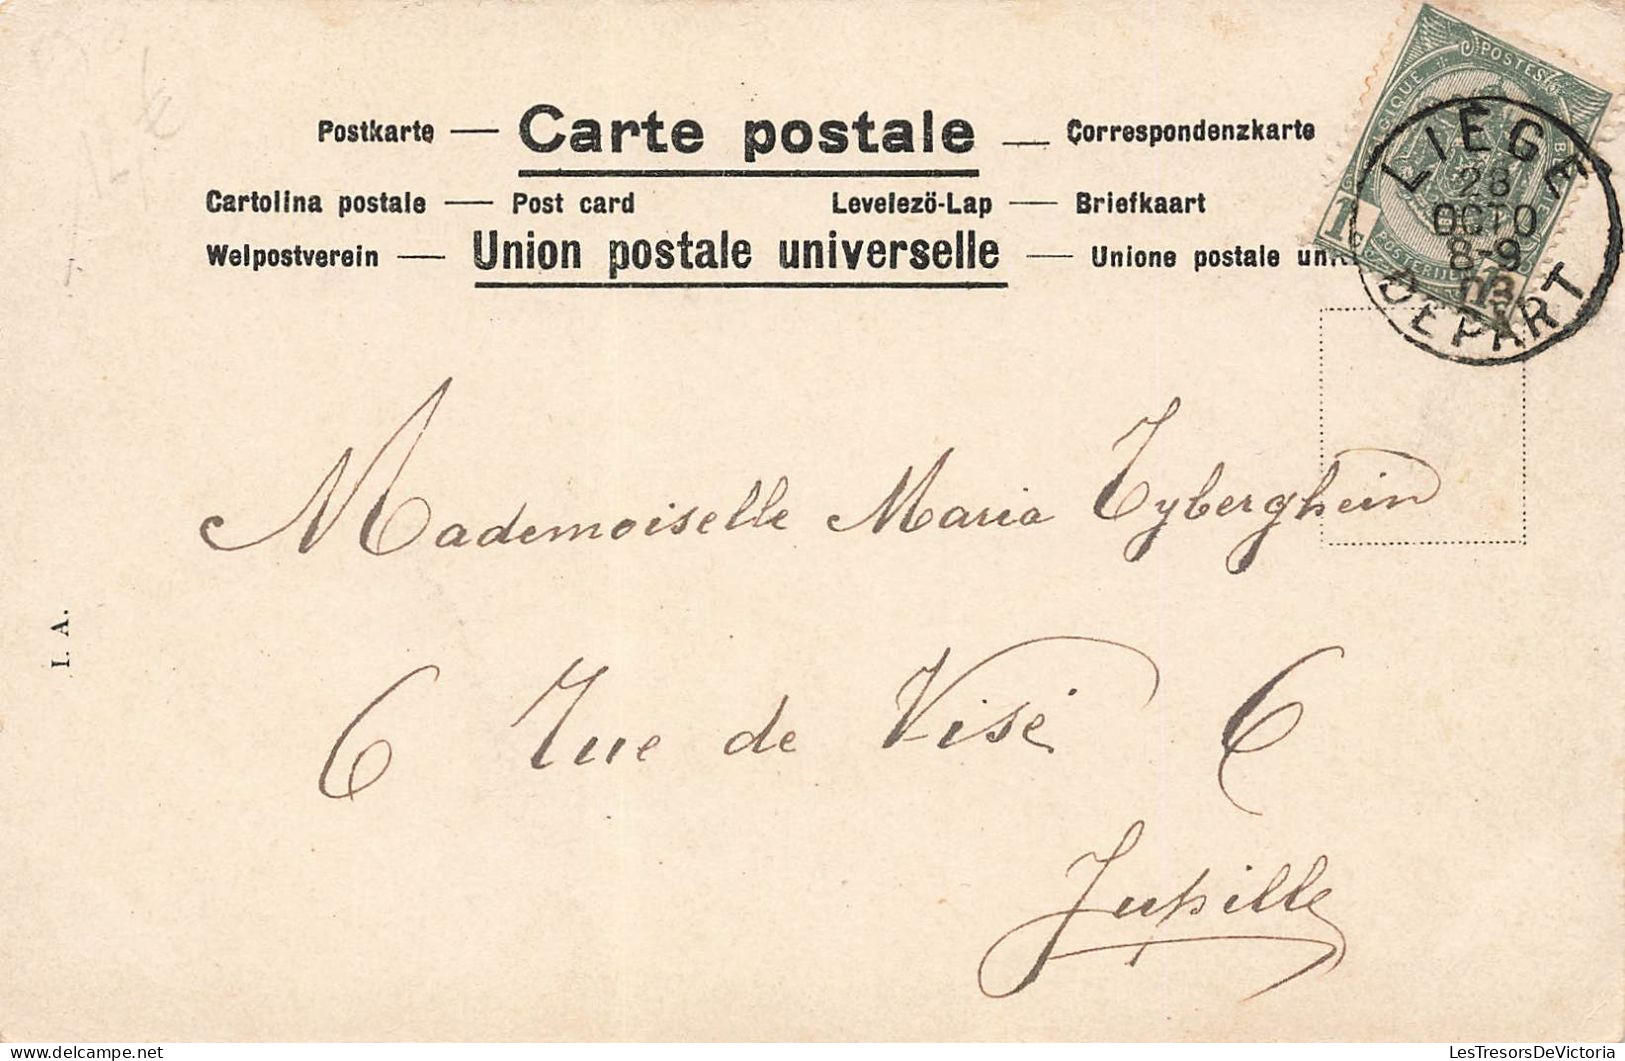 Postkarte — Carte postale — Correspondenzkarte
Cartolina postale — Post card Levelezö-Lap — Briefkaart
Welpostverein — Union postale universelle — Unione postale
BELGIQUE POSTES
1c
POSTERIJEN
LIEGE
OCTO
8-9
03
DEPART
Mademoiselle Maria Tyberghein
6 Rue de Visé 6
Jupille
I. A.
LesTresorsDeVictoria